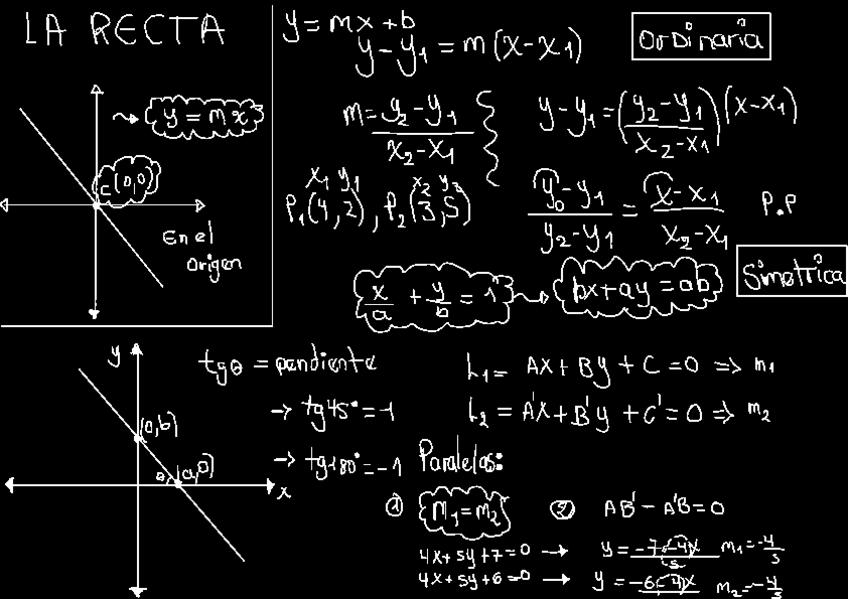 LA RECTA
y = mx + b
y - y₁ = m (x - x₁)
Ordinaria
y = mx
c (0,0)
En el
origen
m = y₂ - y₁ / x₂ - x₁
y - y₁ = (y₂ - y₁ / x₂ - x₁) (x - x₁)
x₁ y₁ x₂ y₂
P₁(4,2), P₂(3,5)
y - y₁ / y₂ - y₁ = x - x₁ / x₂ - x₁ P.P
x/a + y/b = 1 → bx + ay = ab
Simetrica
y
(0,b)
(a,0)
x
tgθ = pendiente
→ tg45° = -1
→ tg180° = -1
L₁ = AX + BY + C = 0 => m₁
L₂ = A'X + B'Y + C' = 0 => m₂
Paralelas:
① m₁ = m₂
② AB' - A'B = 0
4x + 5y + 7 = 0 → y = -7 - 4x / 5 m₁ = -4/5
4x + 5y + 6 = 0 → y = -6 - 4x m₂ = -4/5